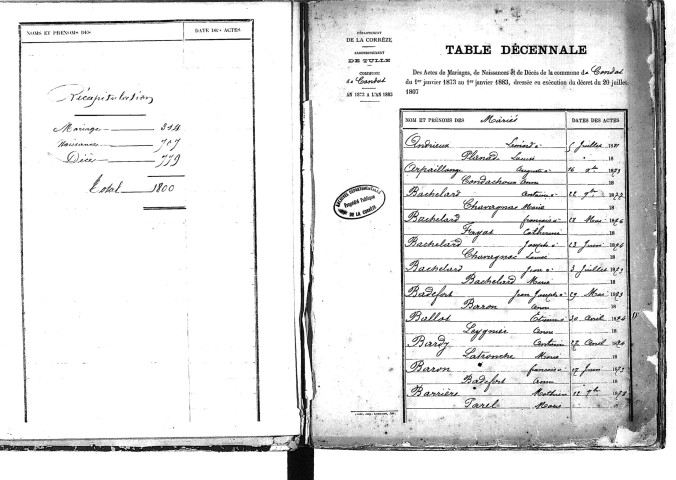 NOMS ET PRÉNOMS DES
DATE DES ACTES
Récapitulation
Mariage 314
Naissance 707
Décé 779
Total 1800
DÉPARTEMENT
DE LA CORRÈZE
ARRONDISSEMENT
DE TULLE
COMMUNE
de Condat
AN 1873 A L'AN 1883
TABLE DÉCENNALE
Des Actes de Mariages, de Naissances et de Décès de la commune de Condat
du 1er janvier 1873 au 1er janvier 1883, dressée en exécution du décret du 20 juillet
1807
NOM ET PRÉNOMS DES Mariés
DATES DES ACTES
Andrieux Léonard 5 Juillet 18
Planade 18
Arpaillange 16
Condachoux Anne 18
Bachelard Antoine 22 9bre 1877
Chavagnac Marie 18
Bachelard françois 18 Mars 1876
Feyat Catherine 18
Bachelard Joseph 23 Juin 1876
Chavagnac 18
Bachelard Jean 3 Juillet 1879
Bachelard Marie 18
Badefort Jean Joseph 29 Mai
Baron Anne 18
Ballot Étienne 30 Avril 1874
Leygnie Anne 18
Bardy Antoine 27 Avril 1874
Latronche Marie 18
Baron françois 17 Juin
Badefort Anne
Barrière Mathieu 18
Tarel Marie
ARCHIVES DÉPARTEMENTALES
Propriété Publique
DE LA CORRÈZE